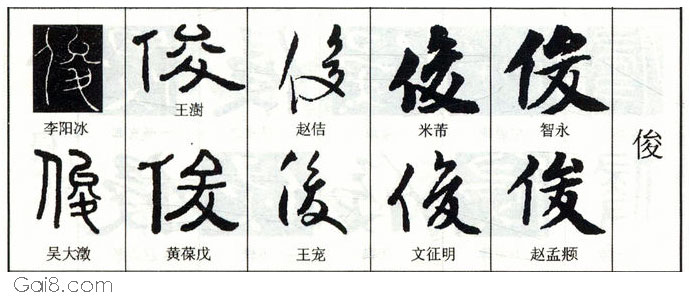 俊 俊 俊 俊 俊
李阳冰 王澍 赵佶 米芾 智永
俊
俊 俊 俊 俊 俊
吴大澂 黄葆戊 王宠 文征明 赵孟𫖯
Gai8.com